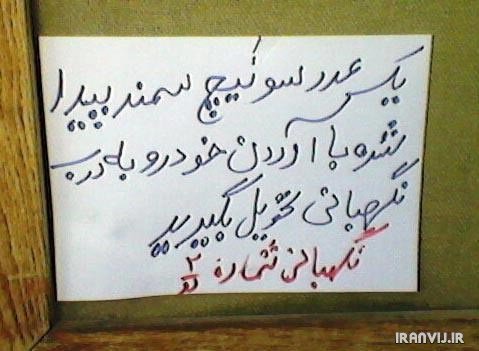 یک عدد سوئیچ سمند پیدا
شده با آوردن خودرو به درب
نگهبانی تحویل بگیرید
نگهبانی شماره ۲
IRANVIJ.IR